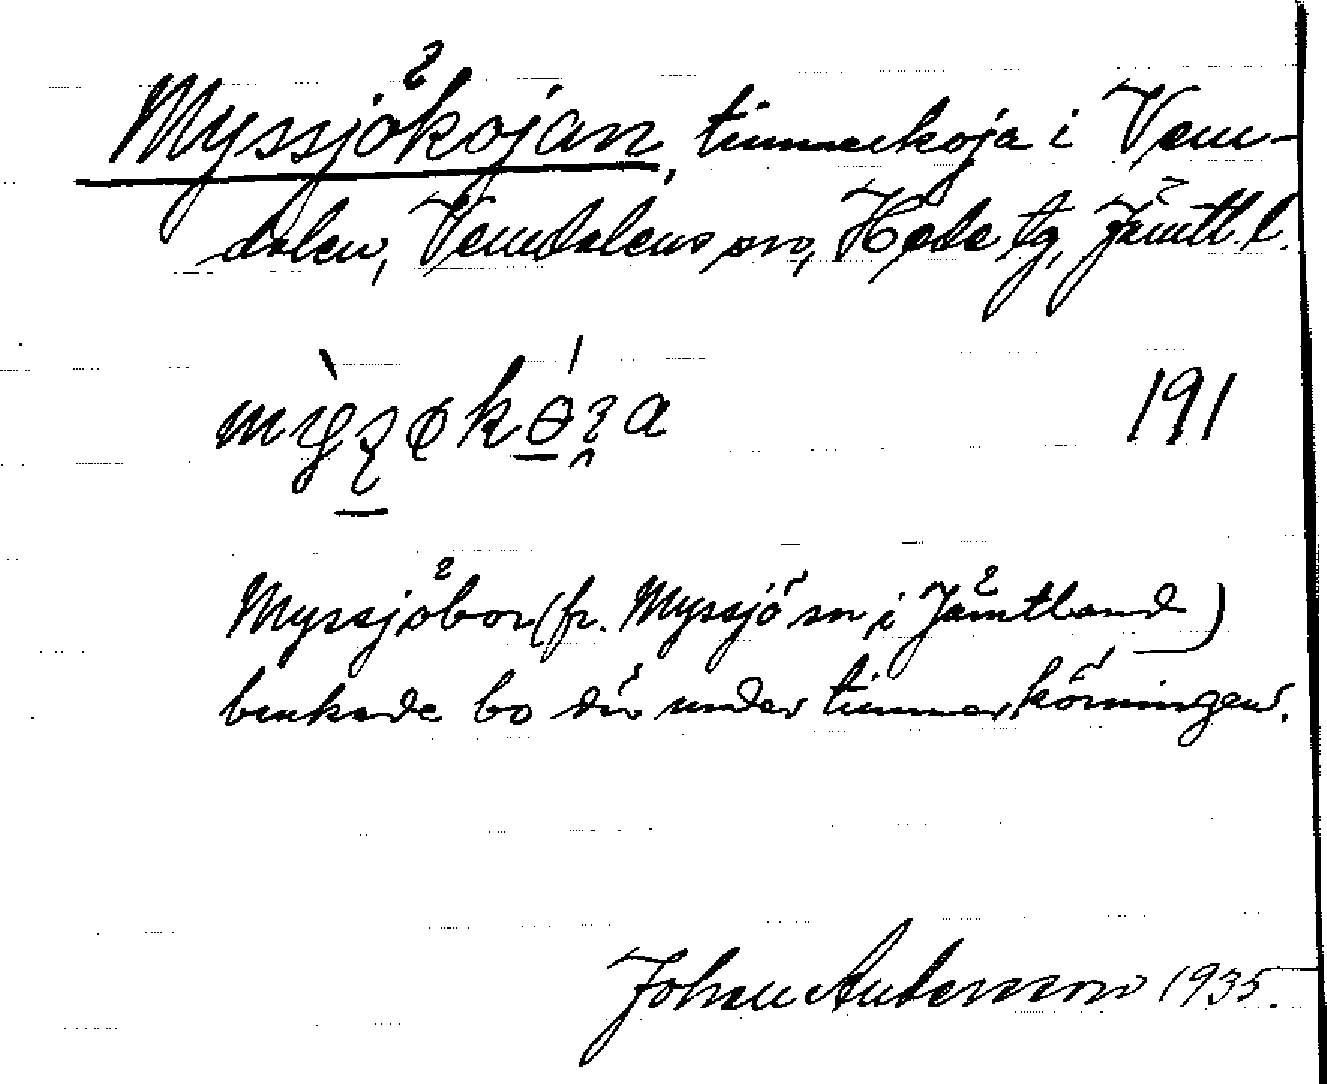 Myssjökojan, timmerkoja i Vem-
dalen, Vemdalens sn, Hede tg, Jämtl. l.
191
Myssjöbor (fr. Myssjö sn i Jämtland)
brukade bo där under timmerkörningen.
Johan Andersson 1935.